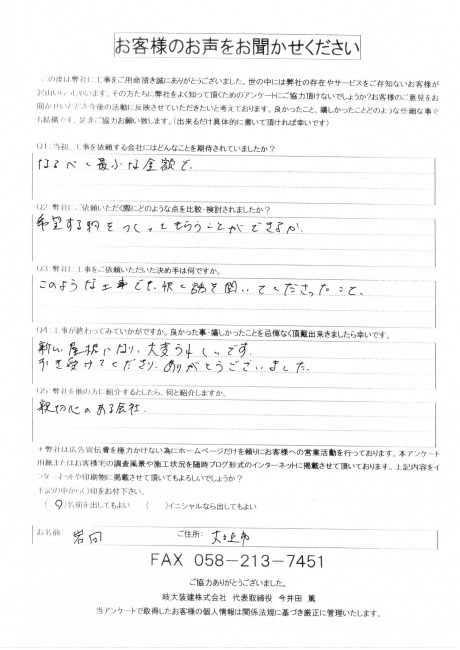 お客様のお声をお聞かせください
この度は弊社に工事をご用命頂き誠にありがとうございました。世の中には弊社の存在やサービスをご存知ないお客様が
沢山いらっしゃいます。その方たちに弊社をよく知って頂くためのアンケートにご協力頂けないでしょうか?お客様のご意見をお
聞かせいただき今後の活動に反映させていただきたいと考えております。良かったこと、嬉しかったことどのような些細な事で
も結構です。是非ご協力お願い致します。(出来るだけ具体的に書いて頂ければ幸いです)
Q1:当初、工事を依頼する会社にはどんなことを期待されていましたか?
なるべく最小な金額で、
Q2:弊社にご依頼いただく際にどのような点を比較・検討されましたか?
希望する物をつくってもらうことができるか、
Q3:弊社に工事をご依頼いただいた決め手は何ですか。
このような工事でも、快く話を聞いてくださったこと、
Q4:工事が終わってみていかがですか。良かった事・嬉しかったことを忌憚なく頂戴出来きましたら幸いです。
新しい屋根になり、大変うれしいです。
引き受けてくださり、ありがとうございました。
Q5:弊社を他の方に紹介するとしたら、何と紹介しますか。
親切心のある会社.
*弊社は広告宣伝費を極力かけない為にホームページだけを頼りにお客様への営業活動を行っております。本アンケート
用紙またはお客様宅の調査風景や施工状況を随時ブログ形式のインターネットに掲載させて頂いております。上記内容をイ
ンターネットや印刷物に掲載させて頂いてもよろしいでしょうか?
下記の中から○印をお付下さい。
( )名前を出してもよい ( )イニシャルなら出してもよい
お名前: 岩田 ご住所: 大垣市
FAX 058-213-7451
ご協力ありがとうございました。
岐大装建株式会社 代表取締役 今井田 篤
当アンケートで取得したお客様の個人情報は関係法規に基づき厳正に管理いたします。